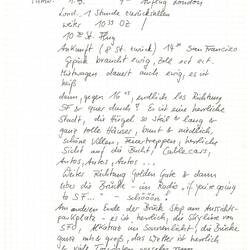 Lond. 1 Stunde zurückstellen
weiter 10³³ OZ
10 ½ St. Flug
Ankunft (8 St. zurück) 14⁰⁰ San Francisco
Gepäck braucht ewig, Zoll ect. ect.
Mietwagen dauert auch ewig, es ist
heiß
dann, gegen 16⁰⁰, endlich los Richtung
SF & quer durch! Es ist eine herrliche
Stadt, die Hügel so steil & lang &
ganz tolle Häuser, bunt & niedlich,
schöne Villen, Feuertreppen, herrliche
Sicht auf die Bucht, Cable cars,
Autos, Autos, Autos ...
Weiter Richtung Golden Gate & dann
über die Brücke - im Radio „if you're going
to SF..." - schööön!
Am anderen Ende der Brücke Stop am Aussichts-
parkplatz - es ist herrlich, die Skyline von
SFO, Alkatraz im Sonnenlicht, die Brücke
ganz nah & groß, das Wetter ist herrlich